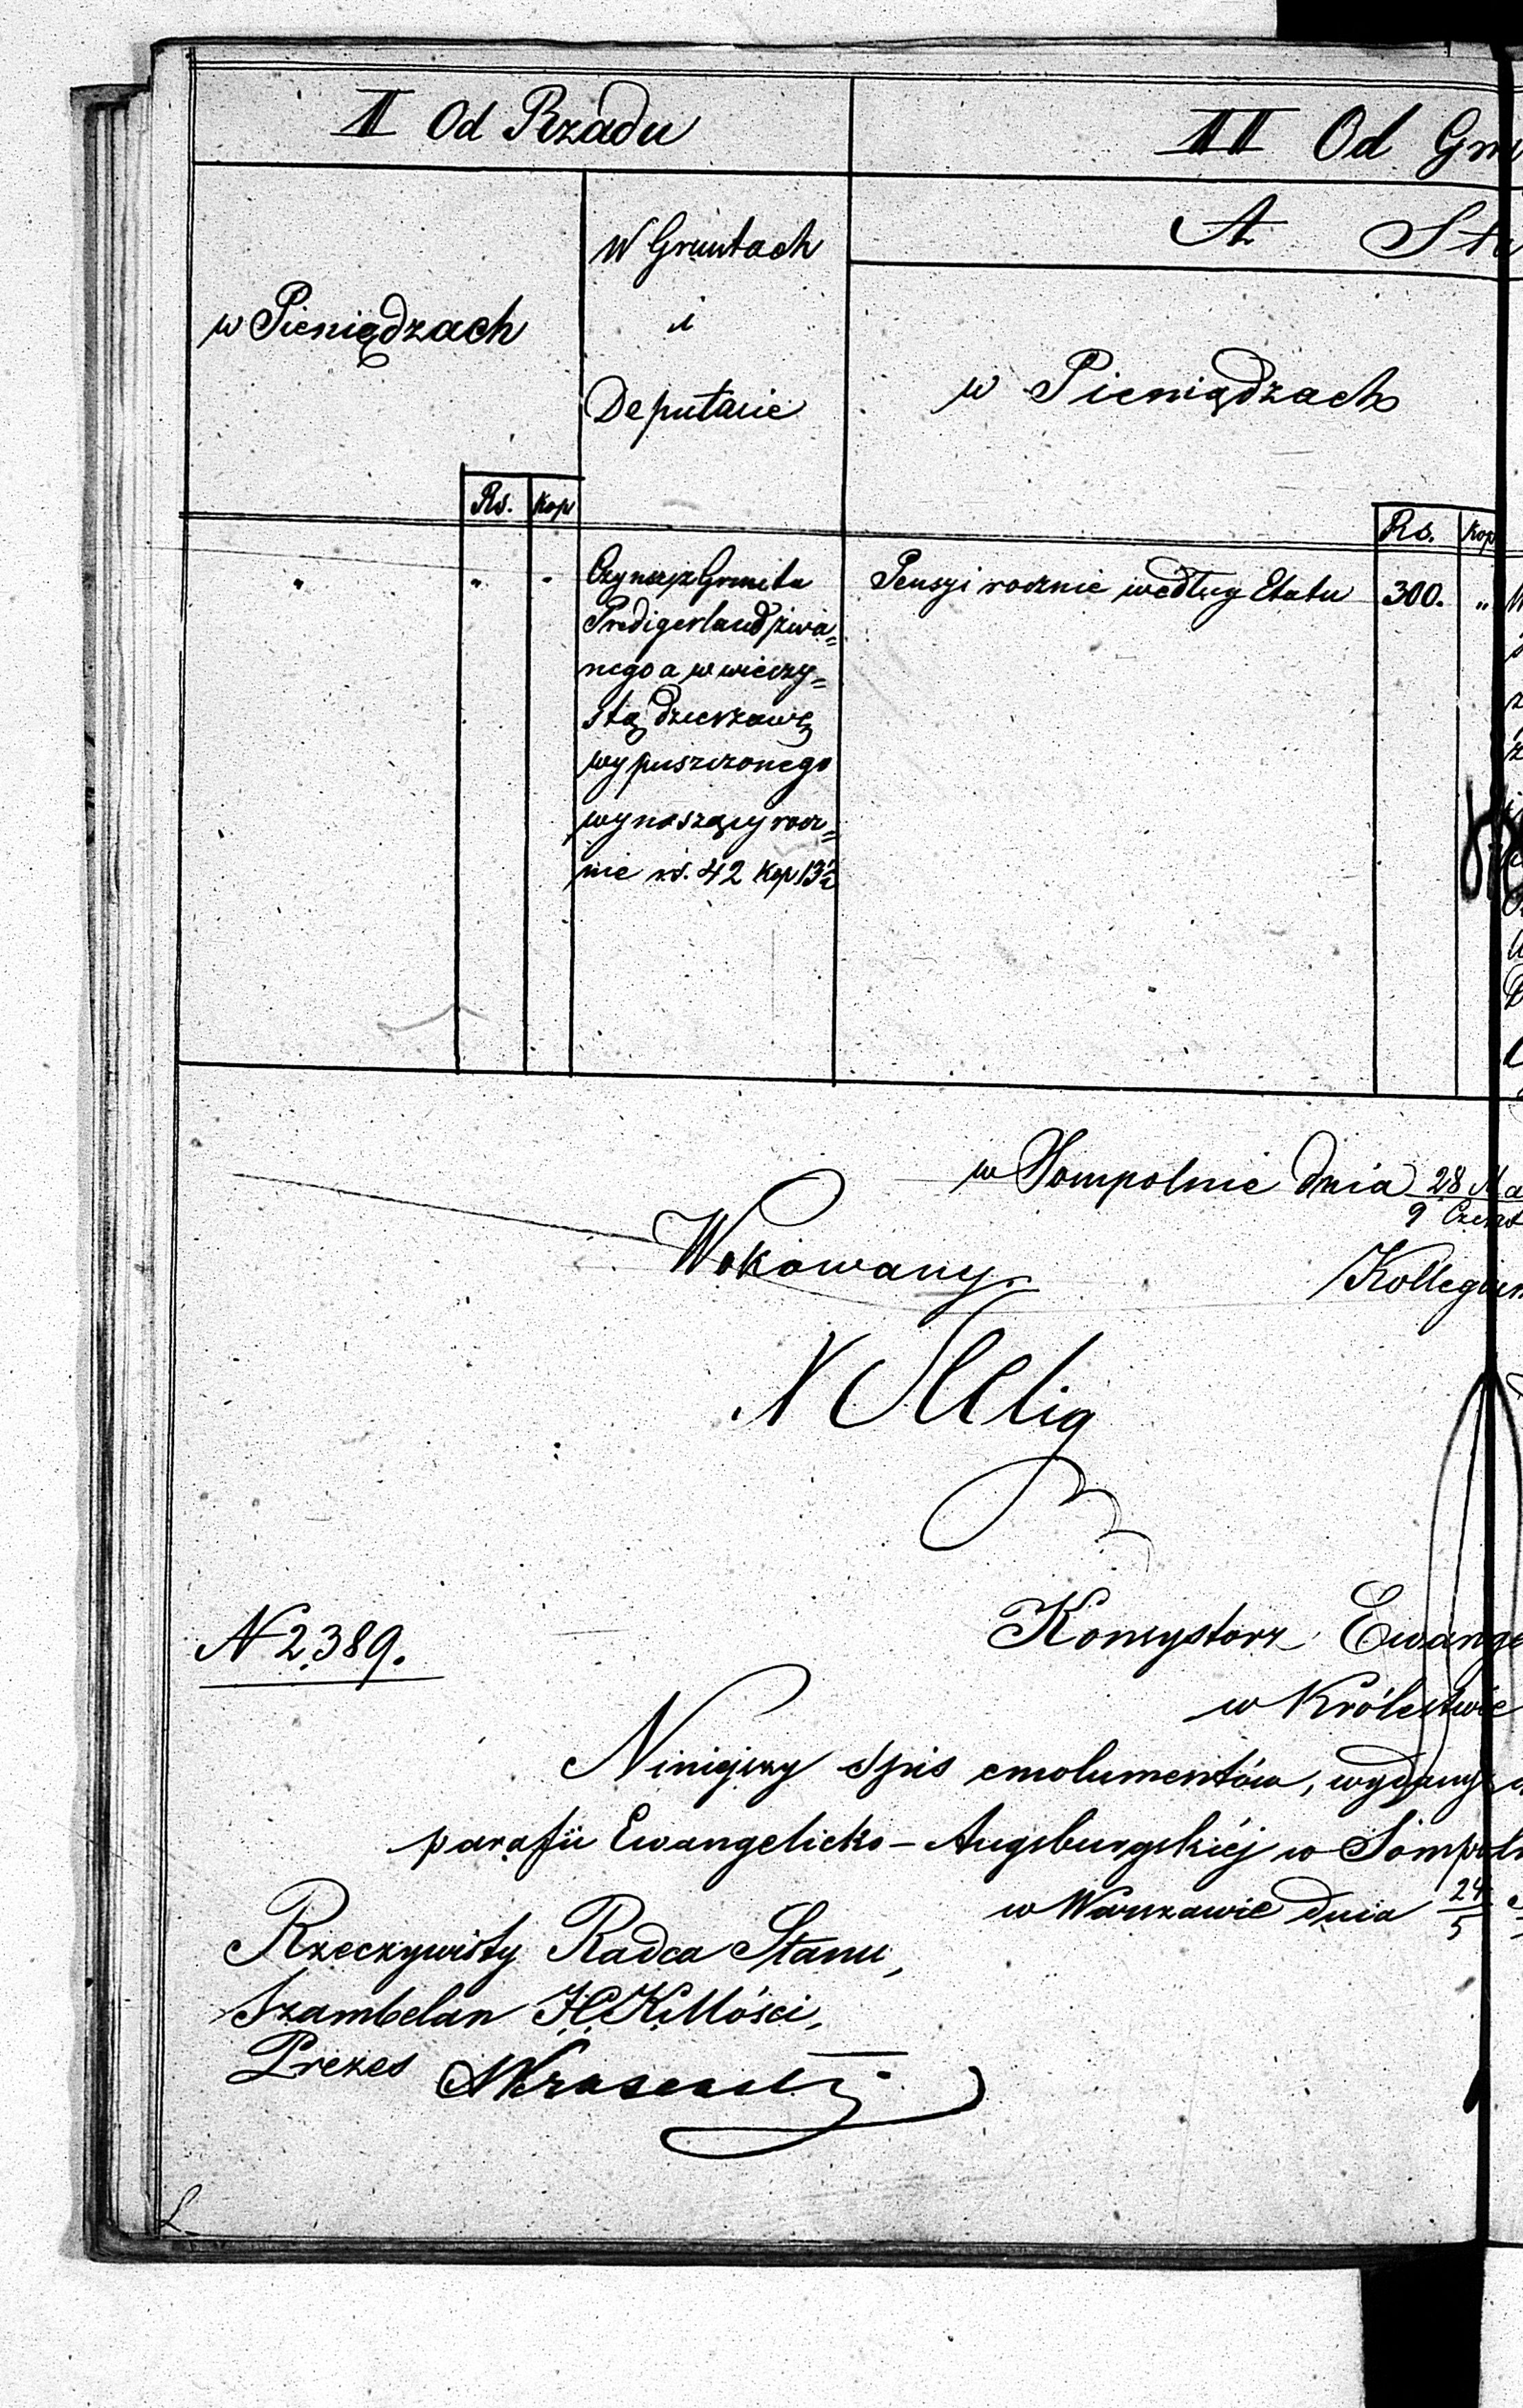 II Od Rządu
III Od Gm
A Sta
w Pieniądzach
W Gruntach
i
Deputacie
w Pieniądzach
Rs. Kop
Rs. Kop
" " "
Czynsz z Gruntu
Predigerland zwa=
nego a w wieczy=
stą dzierżawę
wypuszczonego
wynoszący rocz=
nie rs. 42 kop 13½
Pensyi rocznie według Etatu 300. "
w Sompolnie dnia 28 Ma
9 Czerw
Wokowany
Kollegium
N 2389.
Konsystorz Ewange
w Królestwie
Niniejszy spis emolumentów, wydany
parafii Ewangelicko-Augsburgskiéj w Sompoln
w Warszawie dnia 24
5
Rzeczywisty Radca Stanu,
Szambelan J.C.K. Mości,
Prezes